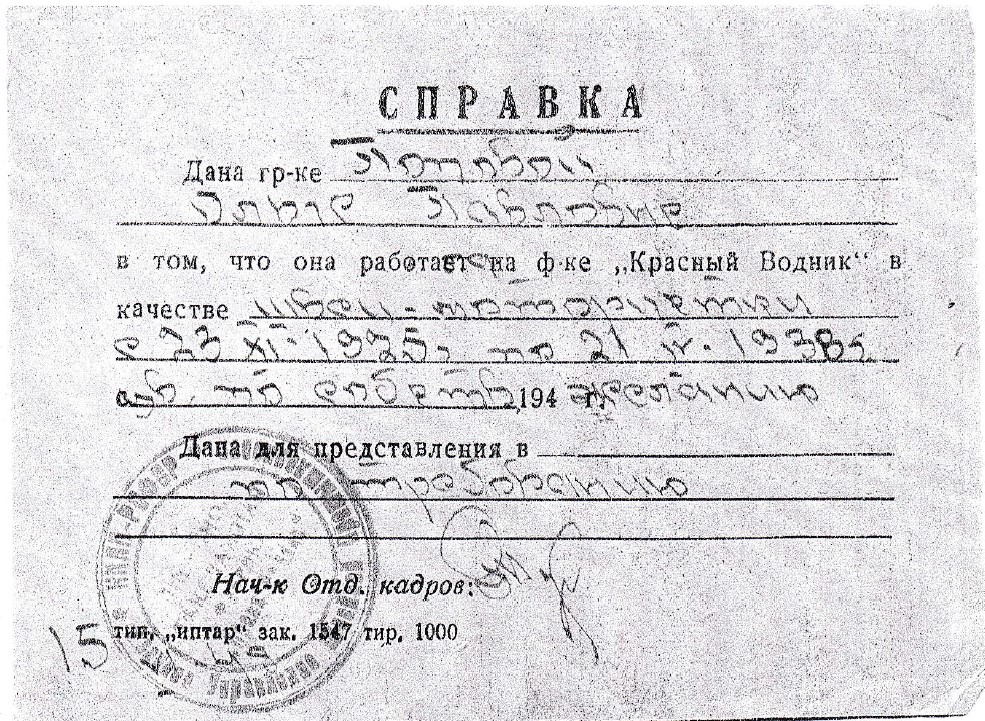 СПРАВКА
Дана гр-ке Поповой
Ольге Павловне
в том, что она работает на ф-ке „Красный Водник“ в
качестве швеи-мотористки
с 23 XI-1925г по 21 IV-1938г.
ув. по собств 194 г. желанию
Дана для представления в
по требованию
Нач-к Отд. кадров:
15 тип. „иптар“ зак. 1547 тир. 1000